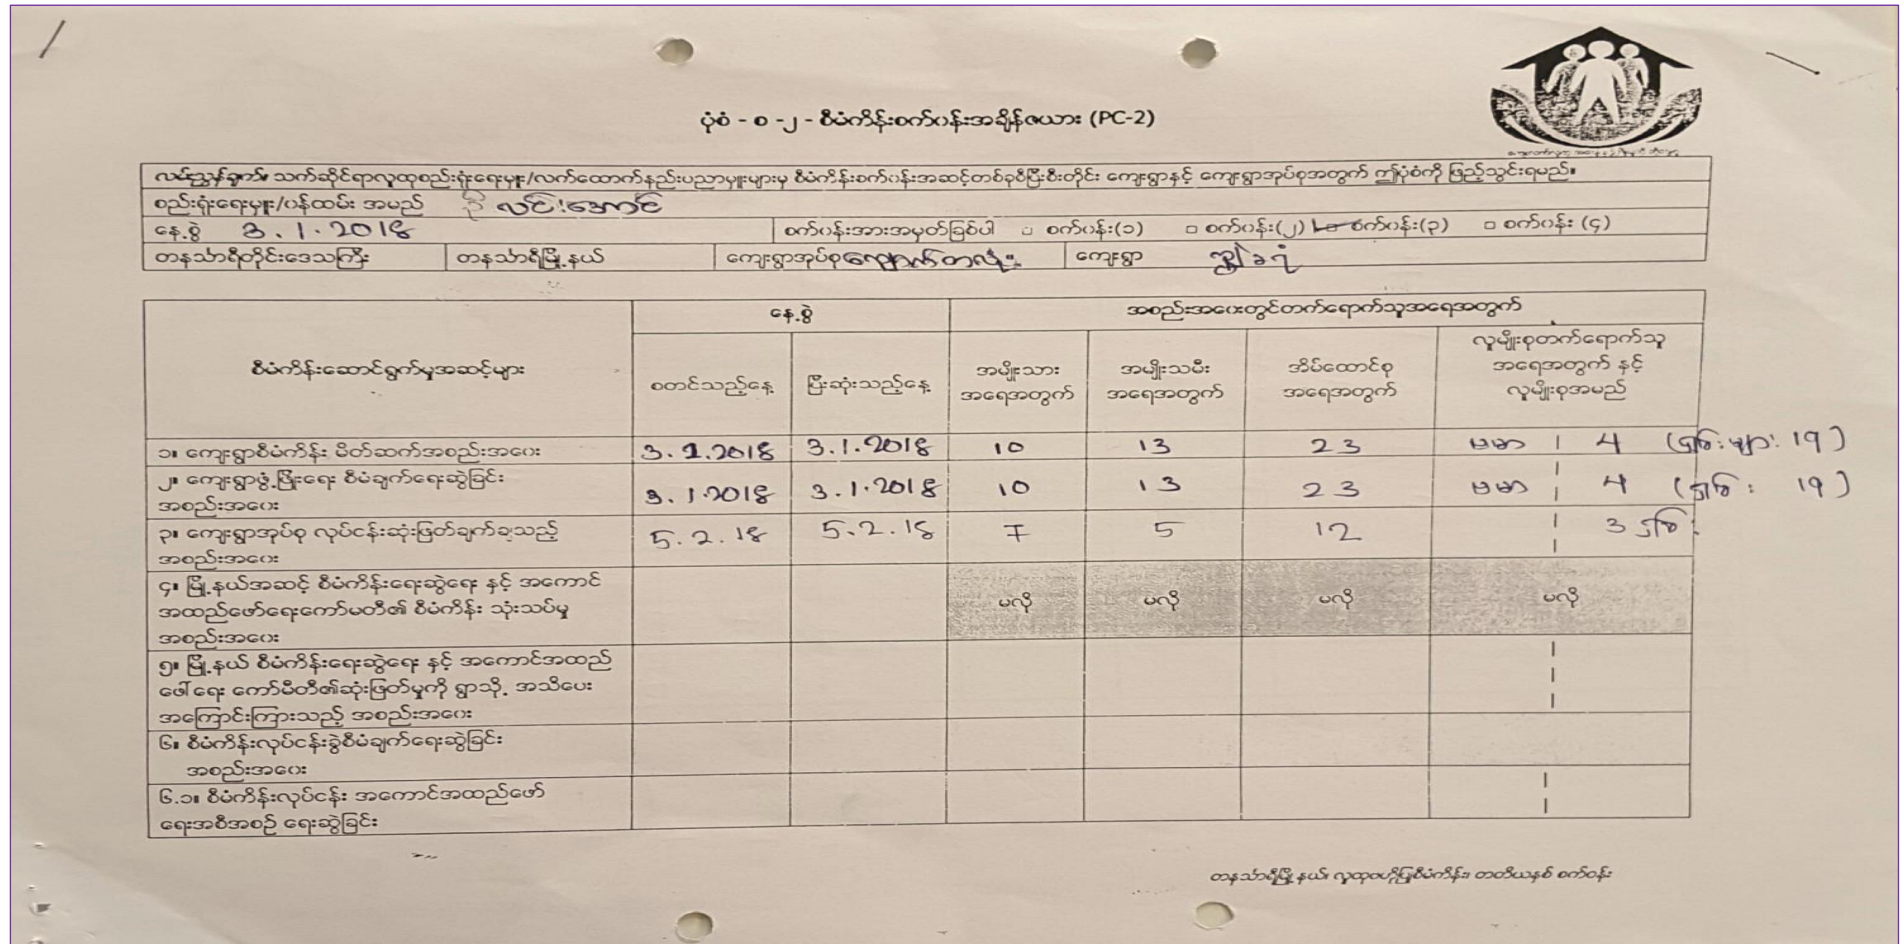 ပုံစံ - စ -၂ - စီမံကိန်းစက်ဝန်းအချိန်ဇယား (PC-2)
လမ်းညွှန်ချက်။ သက်ဆိုင်ရာလူထုစည်းရုံးရေးမှူး/လက်ထောက်နည်းပညာမှူးများမှ စီမံကိန်းစက်ဝန်းအဆင့်တစ်ခုစီပြီးစီးတိုင်း ကျေးရွာနှင့် ကျေးရွာအုပ်စုအတွက် ဤပုံစံကို ဖြည့်သွင်းရမည်။
စည်းရုံးရေးမှူး/ဝန်ထမ်း အမည် ဦလင်းအောင်
နေ့စွဲ 3.1.2018 စက်ဝန်းအားအမှတ်ခြစ်ပါ □ စက်ဝန်း(၁) □ စက်ဝန်း(၂) စက်ဝန်း(၃) □ စက်ဝန်း (၄)
တနင်္သာရီတိုင်းဒေသကြီး တနင်္သာရီမြို့နယ် ကျေးရွာအုပ်စု ကျေးရွာ
နေ့စွဲ အစည်းအဝေးတွင်တက်ရောက်သူအရေအတွက်
စီမံကိန်းဆောင်ရွက်မှုအဆင့်များ စတင်သည့်နေ့ ပြီးဆုံးသည့်နေ့ အမျိုးသား အရေအတွက် အမျိုးသမီး အရေအတွက် အိမ်ထောင်စု အရေအတွက် လူမျိုးစုတက်ရောက်သူ အရေအတွက် နှင့် လူမျိုးစုအမည်
၁။ ကျေးရွာစီမံကိန်း မိတ်ဆက်အစည်းအဝေး 3.1.2018 3.1.2018 10 13 23 ဗမာ 4 19)
၂။ ကျေးရွာဖွံ့ဖြိုးရေး စီမံချက်ရေးဆွဲခြင်း
အစည်းအဝေး 3.1.2018 3.1.2018 10 13 23 ဗမာ 4 19)
၃။ ကျေးရွာအုပ်စု လုပ်ငန်းဆုံးဖြတ်ချက်ချသည့်
အစည်းအဝေး 5.2.18 5.2.18 7 5 12 3
၄။ မြို့နယ်အဆင့် စီမံကိန်းရေးဆွဲရေး နှင့် အကောင်
အထည်ဖော်ရေးကော်မတီ၏ စီမံကိန်း သုံးသပ်မှု
အစည်းအဝေး မလို မလို မလို မလို
၅။ မြို့နယ် စီမံကိန်းရေးဆွဲရေး နှင့် အကောင်အထည်
ဖေါ်ရေး ကော်မီတီ၏ဆုံးဖြတ်မှုကို ရွာသို့ အသိပေး
အကြောင်းကြားသည့် အစည်းအဝေး
၆။ စီမံကိန်းလုပ်ငန်းခွဲစီမံချက်ရေးဆွဲခြင်း
အစည်းအဝေး
၆.၁။ စီမံကိန်းလုပ်ငန်း အကောင်အထည်ဖော်
ရေးအစီအစဉ် ရေးဆွဲခြင်း
တနင်္သာရီမြို့နယ်၊ လူထုဗဟိုပြုစီမံကိန်း၊ တတိယနှစ် စက်ဝန်း